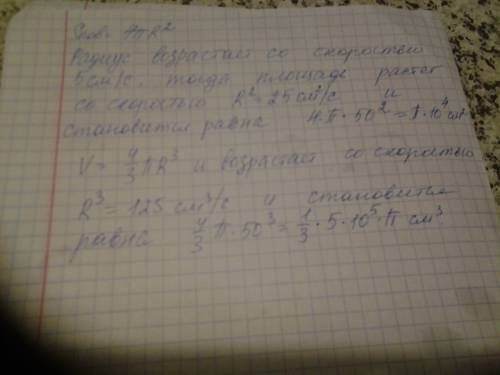 Sпов= 4πR²
Радиус возрастает со скоростью
5см/с, тогда площадь растет
со скоростью R²=25см²/с и
становится равна 4π·50²=π·10⁴см²
V=4/3πR³ и возрастает со скоростью
R³=125см³/с и становится
равна 4/3π·50³=1/3·5·10⁵·π см³